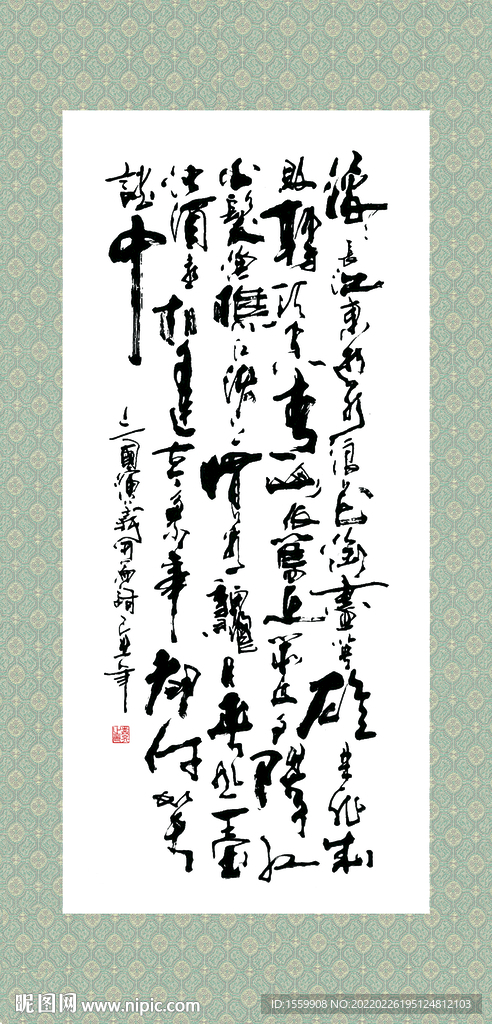 滚滚長江東逝水浪花淘盡英雄是非成
敗轉頭空青山依舊在幾度夕陽紅
白髮漁樵江渚上慣看秋月春風一壺
濁酒喜相逢古今多少事都付笑
談中
三國演義開篇詞己丑年
昵图网 www.nipic.com
ID:1559908 NO:20220226195124812103